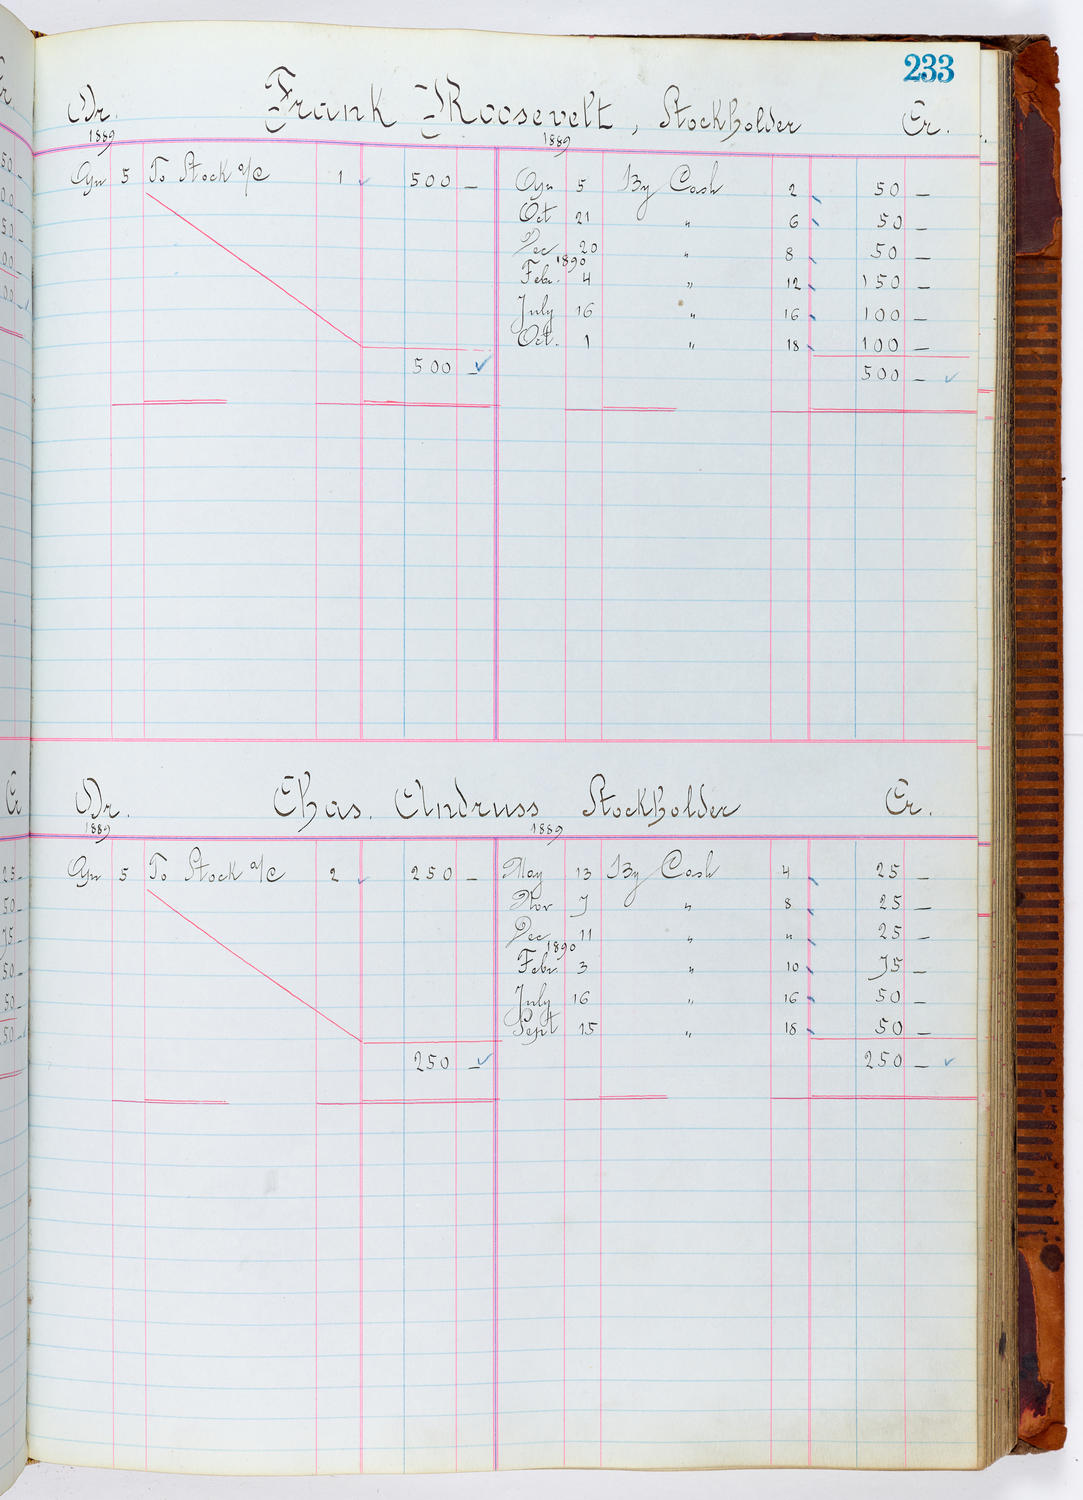 233
Dr. Frank Roosevelt, Stockholder Cr.
1889 1889
Apr 5 To Stock a/c 1 500 — Apr 5 By Cash 2 50 —
Oct 21 " 6 50 —
Dec 20 " 8 50 —
1890
Febr. 4 " 12 150 —
July 16 " 16 100 —
Oct. 1 " 18 100 —
500 — 500 —
Dr. Chas. Andruss Stockholder Cr.
1889 1889
Apr 5 To Stock a/c 2 250 — May 13 By Cash 4 25 —
Nov 7 " 8 25 —
Dec 11 " " 25 —
1890
Febr. 3 " 10 75 —
July 16 " 16 50 —
Sept 15 " 18 50 —
250 — 250 —